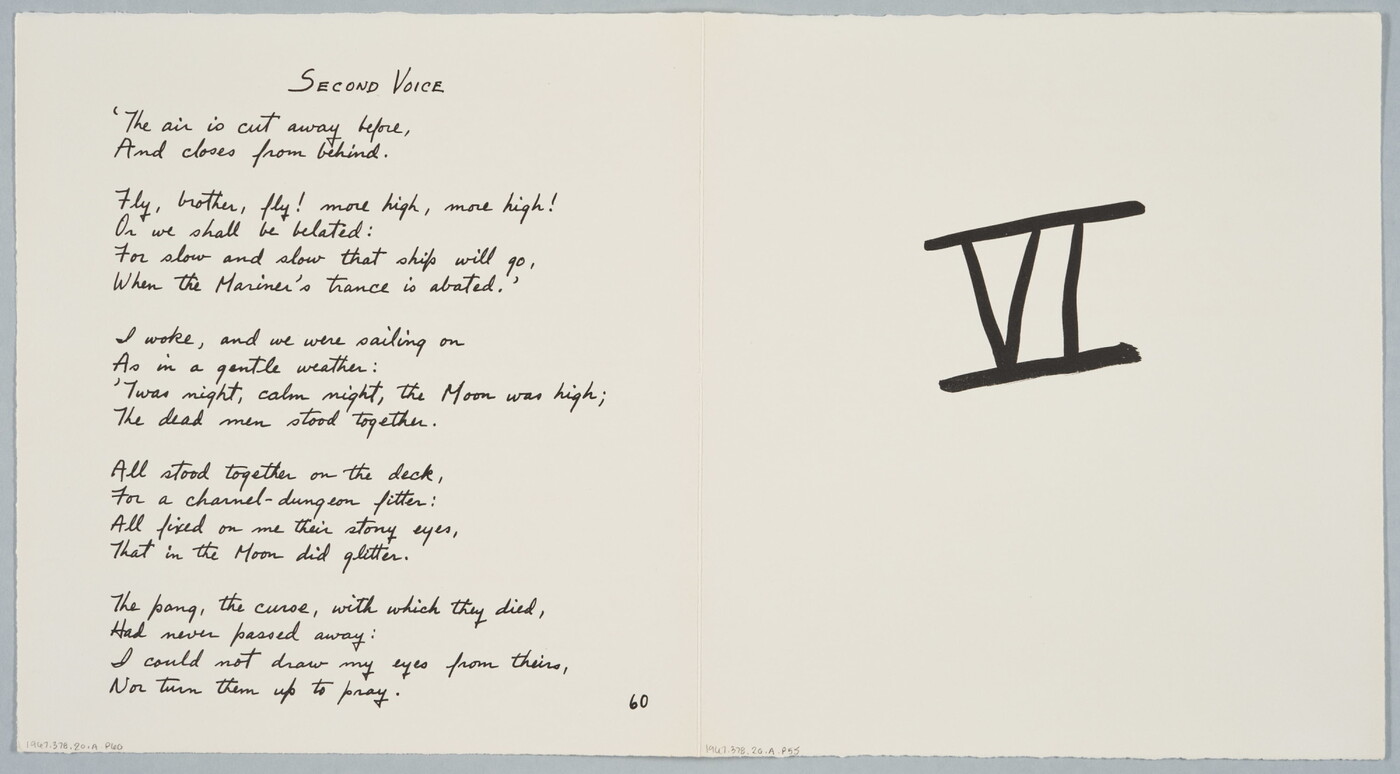 SECOND VOICE
'The air is cut away before,
And closes from behind.
Fly, brother, fly! more high, more high!
Or we shall be belated:
For slow and slow that ship will go,
When the Mariner's trance is abated.'
I woke, and we were sailing on
As in a gentle weather:
'Twas night, calm night, the Moon was high;
The dead men stood together.
All stood together on the deck,
For a charnel-dungeon fitter:
All fixed on me their stony eyes,
That in the Moon did glitter.
The pang, the curse, with which they died,
Had never passed away:
I could not draw my eyes from theirs,
Nor turn them up to pray.
60
1967.378.20.A.P60
VI
1967.378.20.A.P55